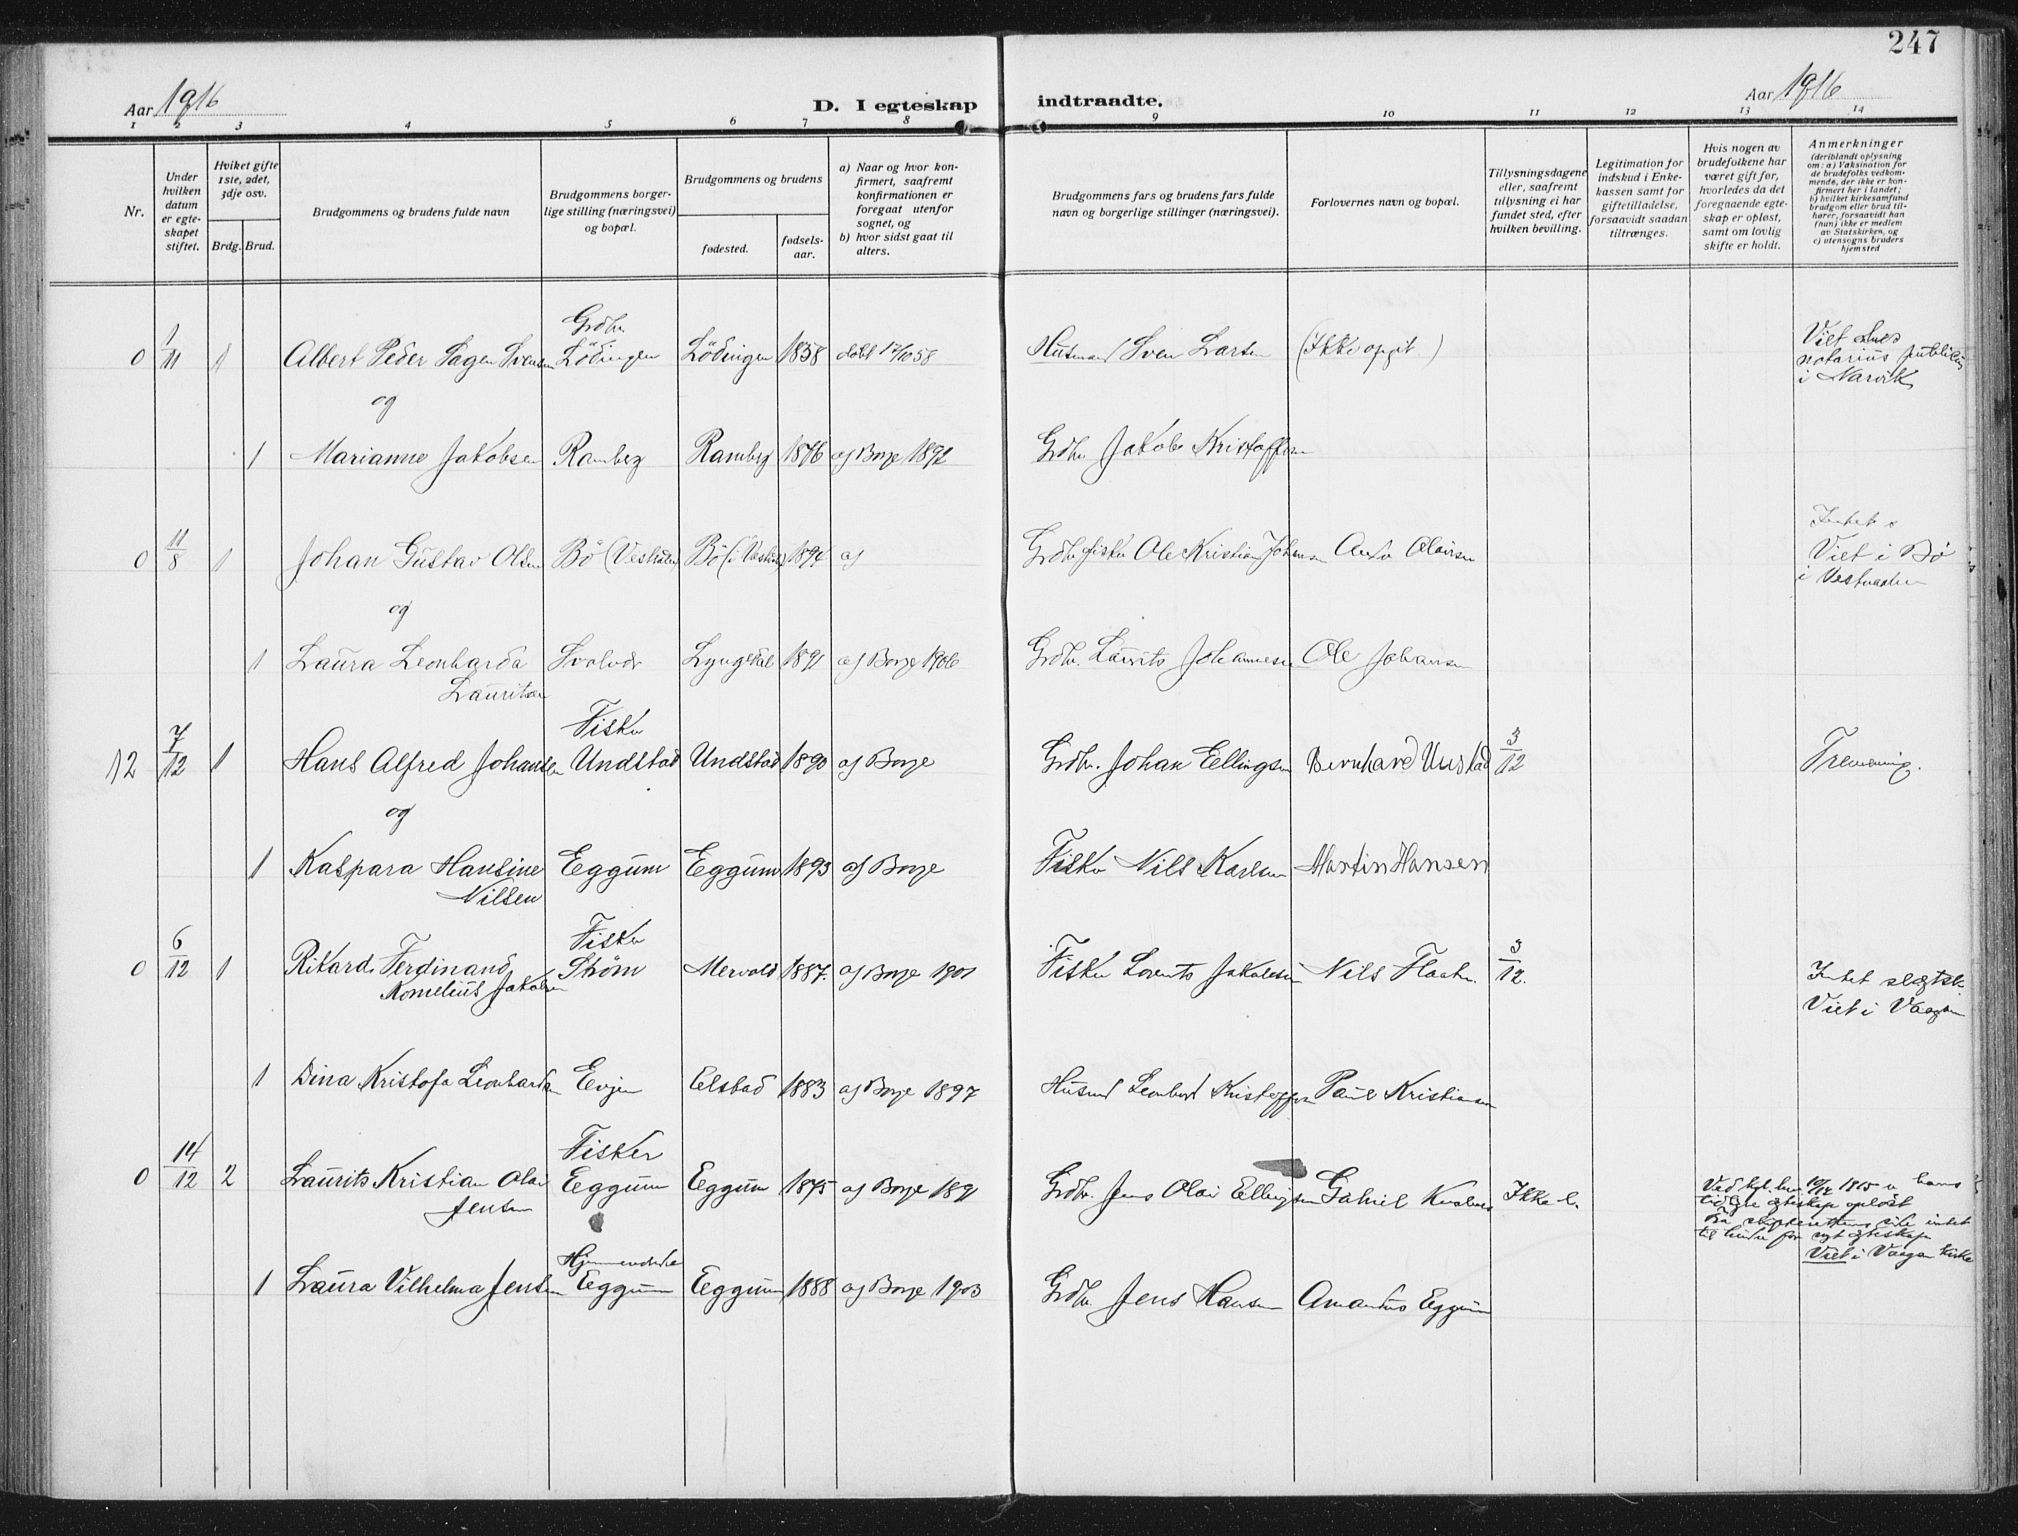 247
Aar 1916
D. I egteskap
indtraadte.
Aar 1916
1 2 3 4 5 6 7 8 9 10 11 12 13 14
Nr.
Under hvilken datum er egteskapet stiftet.
Hviket gifte 1ste, 2det, 3dje osv.
Brdg. Brud.
Brudgommens og brudens fulde navn
Brudgommens borgerlige stilling (næringsvei) og bopæl.
Brudgommens og brudens
fødested.
fødselsaar.
a) Naar og hvor konfirmert, saafremt konfirmationen er foregaat utenfor sognet, og
b) hvor sidst gaat til alters.
Brudgommens fars og brudens fars fulde navn og borgerlige stillinger (næringsvei).
Forlovernes navn og bopæl.
Tillysningsdagene eller, saafremt tillysning ei har fundet sted, efter hvilken bevilling.
Legitimation for indskud i Enkekassen samt for giftetilladelse, forsaavidt saadan tiltrænges.
Hvis nogen av brudefolkene har været gift før, hvorledes da det foregaaende egteskap er opløst, samt om lovlig skifte er holdt.
Anmerkninger
(deriblandt oplysning om: a) Vaksination for de brudefolks vedkommende, der ikke er konfirmert her i landet; b) hvilket kirkesamfund brudgom eller brud tilhører, forsaavidt han (hun) ikke er medlem av Statskirken, og c) utensogns bruders hjemsted
0 1/11 1 Albert Peder Sagen Svensen Grdbr. Lödingen Lödingen 1858 döbt 17/10 58 Husmand Sven Larsen (Ikke opgit) Viet hos notarius publicus i Narvik
og
1 Marianne Jakobsen Ramberg Ramberg 1876 a) Borge 1892 Grdbr. Jakob Kristoffersen
0 11/8 1 Johan Gustav Olsen Bö (Vesteraalen) Bö (i Vesteraalen) 1894 a) Grdbr. fisker Ole Kristian Johansen Viet i Bö i Vesteraalen
og
1 Laura Leonharda Lauritsen Svolvær Lyngedal 1891 a) Borge 1906 Grdbr. Laurits Johannesen Ole Johansen
12 7/12 1 Hans Alfred Johansen Fisker Undstad Undstad 1890 a) Borge Grdbr. Johan Ellingsen Bernhard Unstad 3/12 Tremenning.
og
1 Kaspara Hansine Nilsen Eggum Eggum 1893 a) Borge Fisker Nils Karlsen Martin Hansen
0 6/12 1 Rikard Ferdinand Kornelius Jakobsen Fisker Ström Mervold 1887. a) Borge 1901 Fisker Lorents Jakobsen Nils 3/12. Intet slegtsk. Viet i Vaagan
1 Dina Kristofa Leonhardsen Evjen Elstad 1883 a) Borge 1897 Husmd Leonhard Kristoffersen Paul Kristiansen
0 14/12 2 Laurits Kristian Olai Jensen Fisker Eggum Eggum 1875 a) Borge 1891 Grdbr. Jens Olai Ellingsen Gabriel Ikke l.
Ved kgl. 1915 hans tidligere egteskap opløst
Viet i Vaagan Kirke
1 Laura Vilhelma Jensen Hjemmeværende Eggum Eggum 1888 a) Borge 1903 Grdbr. Jens Hansen Amandus Eggum